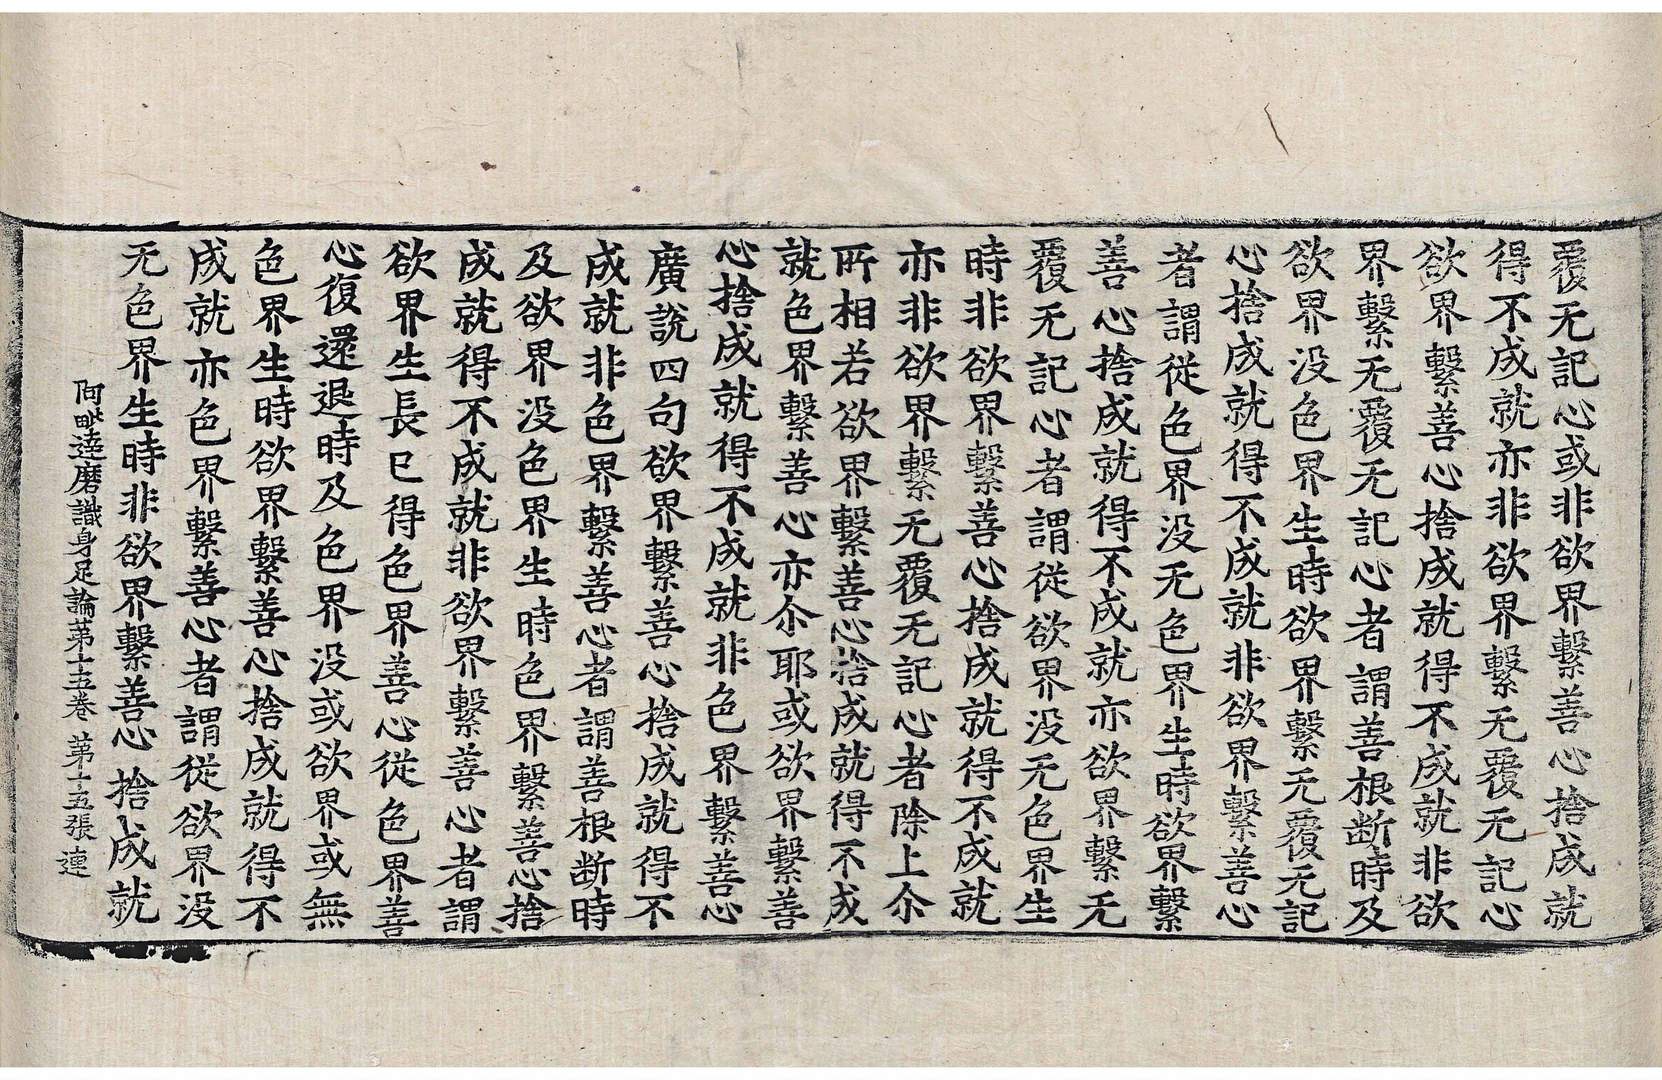 覆无記心或非欲界繫善心捨成就
得不成就亦非欲界繫无覆无記心
欲界繫善心捨成就得不成就非欲
界繫无覆无記心者謂善根断時及
欲界没色界生時欲界繫无覆无記
心捨成就得不成就非欲界繫善心
者謂從色界没无色界生時欲界繫
善心捨成就得不成就亦欲界繫无
覆无記心者謂從欲界没无色界生
時非欲界繫善心捨成就得不成就
亦非欲界繫无覆无記心者除上尒
所相若欲界繫善心捨成就得不成
就色界繫善心亦尒耶或欲界繫善
心捨成就得不成就非色界繫善心
廣說四句欲界繫善心捨成就得不
成就非色界繫善心者謂善根断時
及欲界没色界生時色界繫善心捨
成就得不成就非欲界繫善心者謂
欲界生長已得色界善心從色界善
心復還退時及色界没或欲界或無
色界生時欲界繫善心捨成就得不
成就亦色界繫善心者謂從欲界没
无色界生時非欲界繫善心捨成就
阿毗達磨識身足論苐十五卷 苐十五張 連